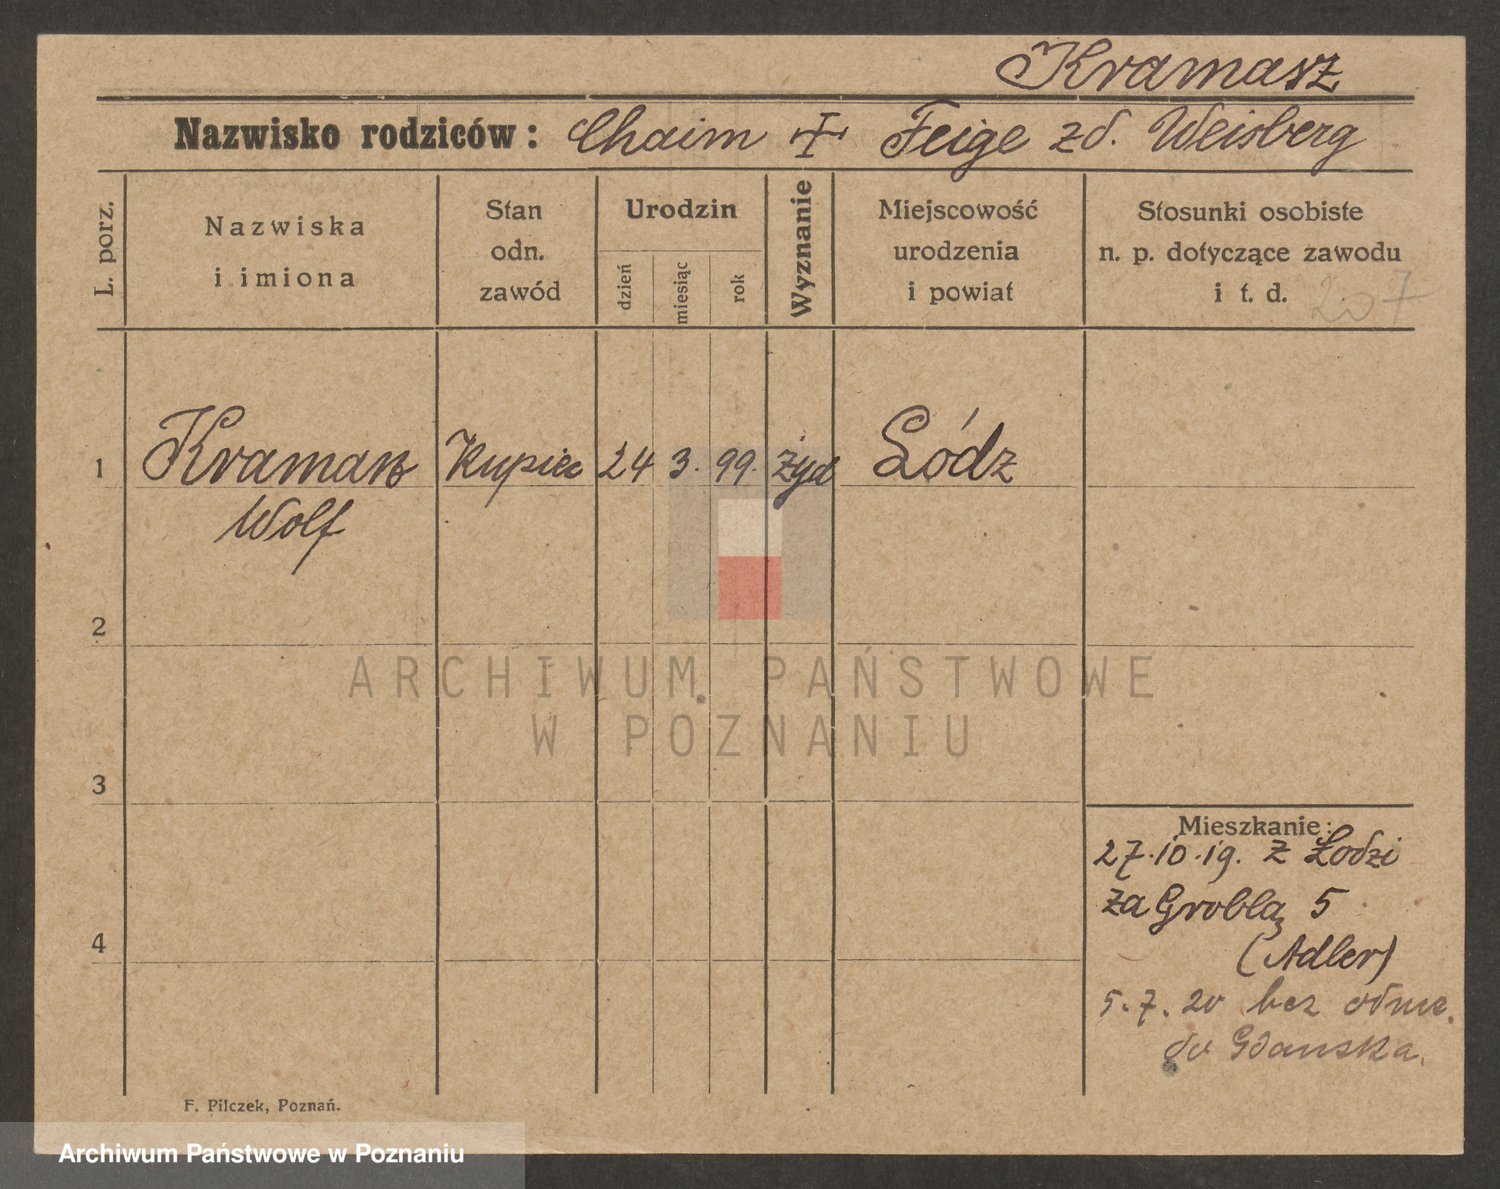 Kramarz
Nazwisko rodziców: Chaim + Feige zd. Weisberg
L. porz.
Nazwiska
i imiona
Stan
odn.
zawód
Urodzin
dzień
miesiąc
rok
Wyznanie
Miejscowość
urodzenia
i powiat
Stosunki osobiste
n. p. dotyczące zawodu
i t. d.
1 Kramarz Kupiec 24 3. 99. żyd Łódz
Wolf
2
ARCHIWUM PAŃSTWOWE
W POZNANIU
3
Mieszkanie:
27.10.19. z Łodzi
za Groblą 5
(Adler)
4
5.7.20 bez odme.
do Gdanska.
F. Pilczek, Poznań.
Archiwum Państwowe w Poznaniu